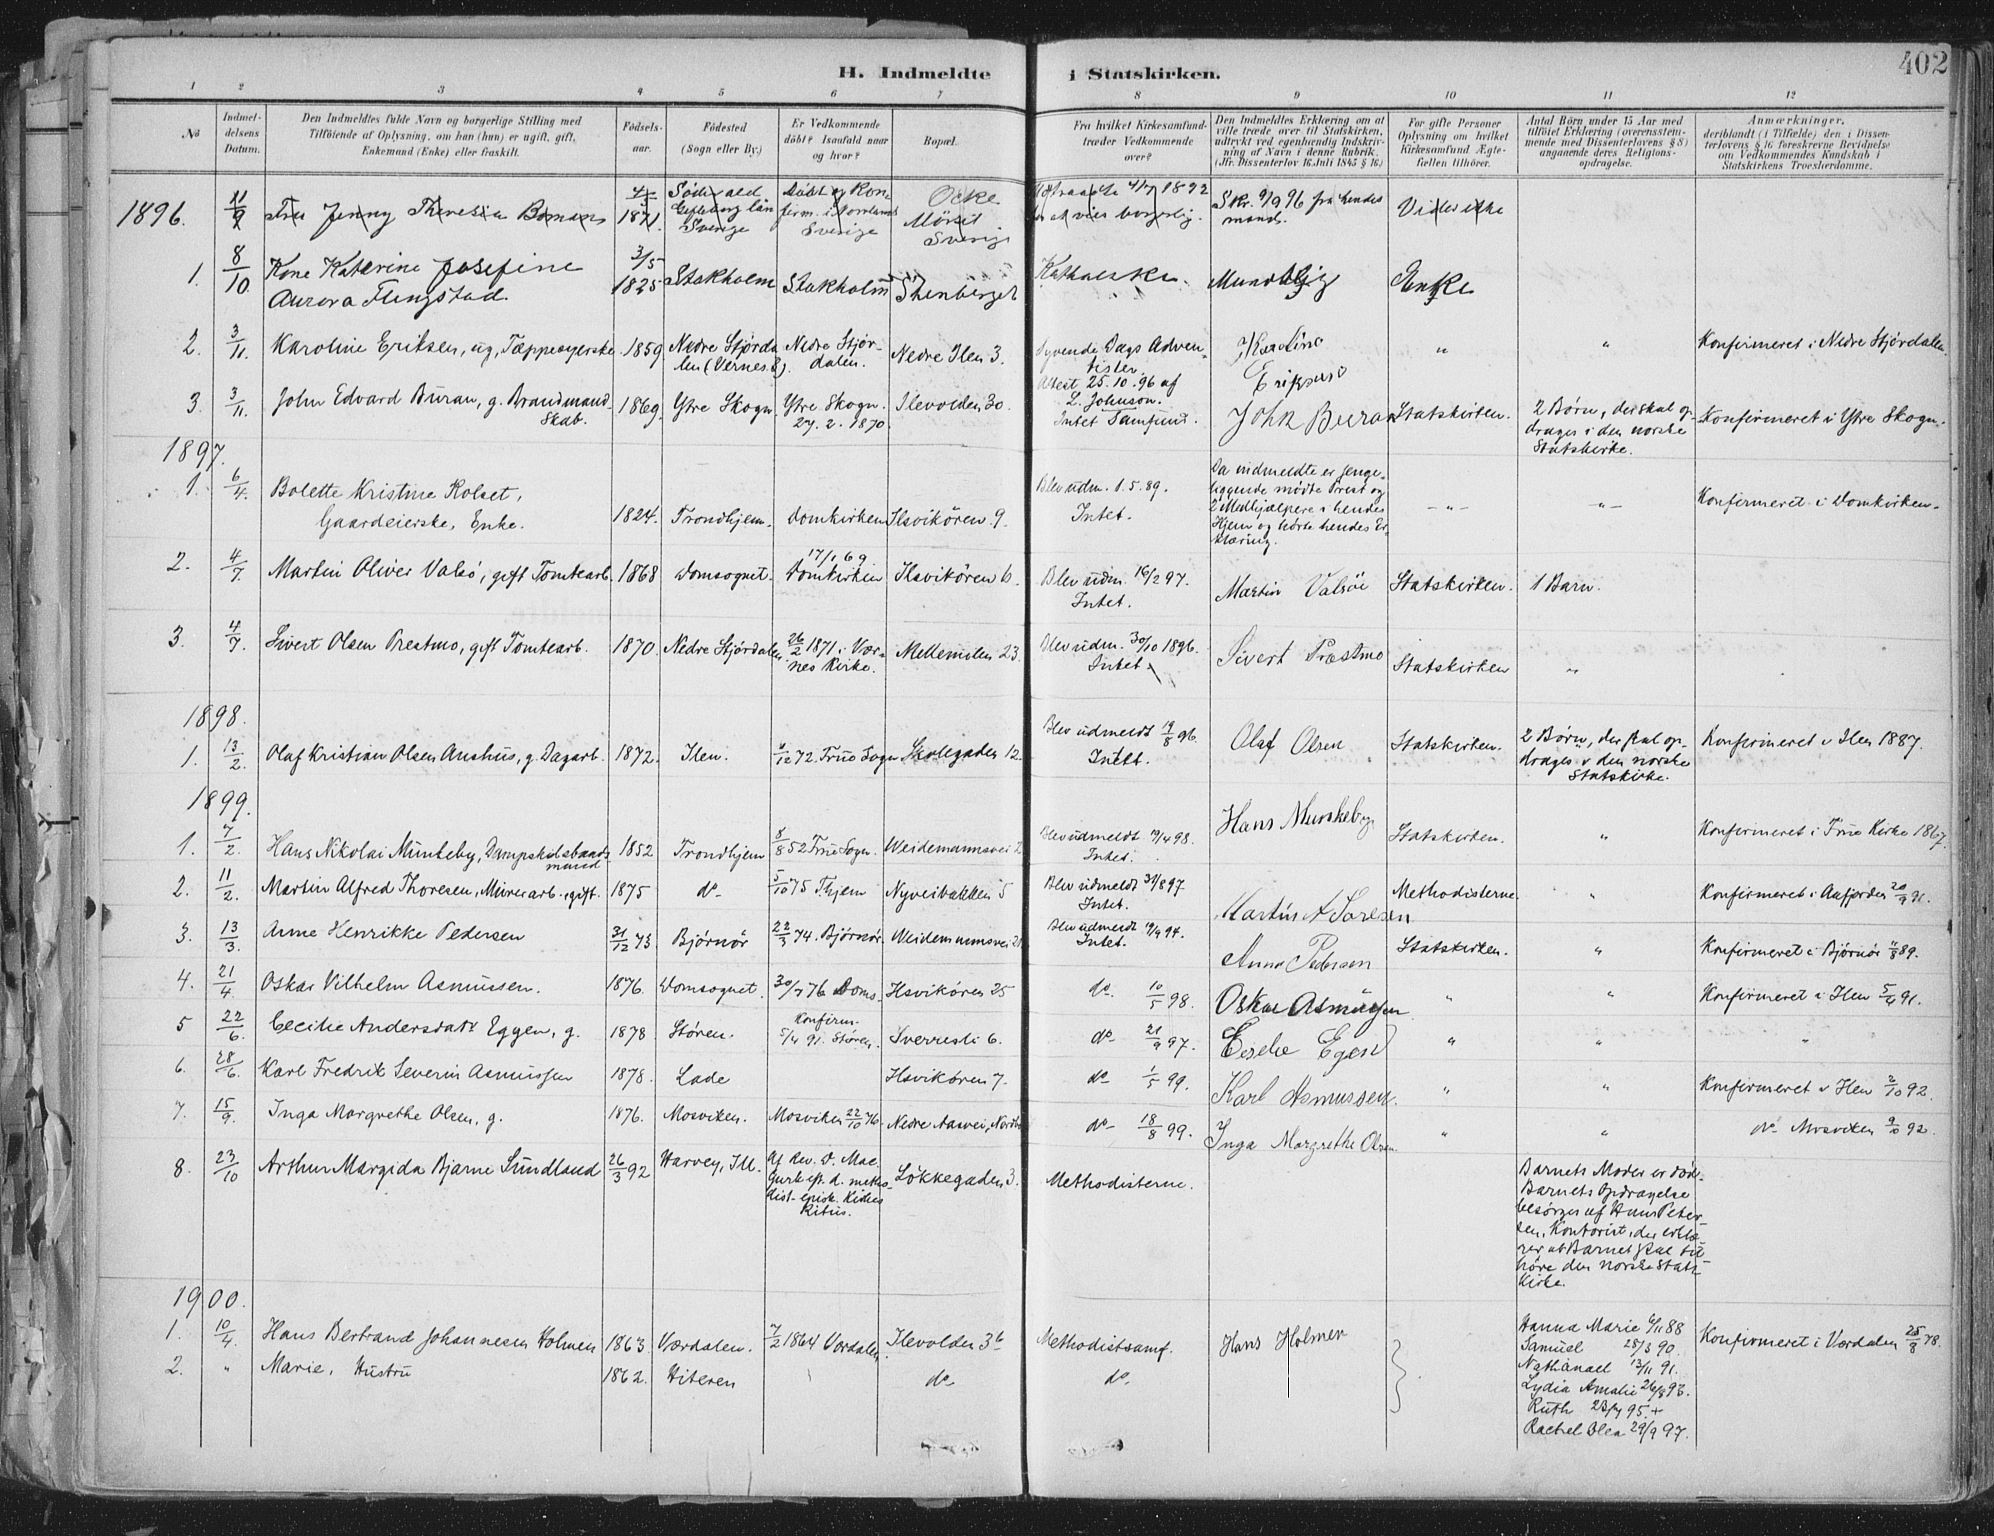 402
H. Indmeldte i Statskirken.
1 2 3 4 5 6 7 8 9 10 11 12
No
Indmel-
delsens
Datum.
Den Indmeldtes fulde Navn og borgerlige Stilling med
Tilföiende af Oplysning, om han (hun) er ugift, gift,
Enkemand (Enke) eller fraskilt.
Födsels-
aar.
Födested
(Sogn eller By.)
Er Vedkommende
döbt? Isaafald naar
og hvor?
Bopæl.
Fra hvilket Kirkesamfund
træder Vedkommende
over?
Den Indmeldtes Erklæring om at
ville træde over til Statskirken,
udtrykt ved egenhændig Indskriv-
ning af Navn i denne Rubrik.
(Jfr. Dissenterlov 16 Juli 1845 § 16.)
For gifte Personer
Oplysning om hvilket
Kirkesamfund Ægte-
fællen tilhörer.
Antal Börn under 15 Aar med
tilföiet Erklæring (overensstem-
mende med Dissenterlovens § 8)
angaaende deres Religions-
opdragelse.
Anmærkninger,
deriblandt (i Tilfælde) den i Dissen-
terlovens § 16 foreskrevne Bevidnelse
om Vedkommendes Kundskab i
Statskirkens Troeslærdomme.
1896. 11/9 Fru Jenny Theresia 1871. Sverige Sverige
Döbt og Kon-
firm. i Norrland
1892
borgerlig. 9/9 96 fra hendes
mand.
1. 8/10 Kone Katerine Josefine
Aurora Tungstad 3/5 1825 Stokholm Stokholm Stenberget Katholske. Mundtlig Enke
2. 3/11. Karoline Eriksen, ug, Tæppesyerske 1859 Nedre Stjørda
len (Vernes S.) Nedre Stjør-
dalen. Nedre Ilen 3. Syvende Dags Adven-
tister.
Attest 25.10.96 af
L. Johnson. Karoline
Eriksen „ „ Konfirmeret i Nedre Stjørdalen.
3. 3/11. John Edvard Buran, g. Brandmand
Skab. 1869. Ytre Skogn Ytre Skogn.
27.2.1870. Ilevolden 30. Intet Samfund. John Buran Statskirken. 2 Børn, der skal op-
drages i den norske
Statskirke. Konfirmeret i Ytre Skogn.
1897.
1. 6/4. Bolette Kristine Rolset,
Gaardeierske, Enke. 1824. Trondhjem. Domkirken Ilsvikören 9. Blev udm. 1.5.89.
Intet. Da indmeldte er senge-
liggende mødte Prest og
2 Medhjælpere i hendes
Hjem og hørte hendes Er-
klæring. -„- -„- Konfirmeret i Domkirken.
2. 4/7. Martin Oliver Valsö, gift Tomtearb. 1868 Domsognet. 17/1 69
Domkirken Ilsvikören 6. Blev udm. 16/2 97.
Intet. Martin Valsöe Statskirken. 1 Barn.
3. 4/7. Sivert Olsen Prestmo, gift Tomtearb. 1870. Nedre Stjørdalen 26/2 1871 i Vær-
nes Kirke. Mellemilen 23. Blev udm. 30/10 1896.
Intet. Sivert Præstmo Statskirken „
1898.
1. 13/2. Olaf Kristian Olsen Aushus, g. Dagarb. 1872. Ilen. /12 72. Frue Sogn Skolegaden 12. Blev udmeldt 19/8 96.
Intet. Olaf Olsen Statskirken. 2 Børn, der skal op-
drages i den norske
Statskirke. Konfirmeret i Ilen 1887.
1899.
1. 7/2. Hans Nikolai Munkeby, Dampskibsbaads
mand 1852 Trondhjem 8/8 52 Frue Sogn. Weidemannsvei 2 Blev udmeldt 19/4 98.
Intet. Hans Munkeby Statskirken. „ Konfirmeret i Frue Kirke 1867.
2. 11/2. Martin Alfred Thoresen, Murerarb., gift. 1875 do 5/10 75 Thjem Nyveibakken 5 Blev udmeldt 31/8 97.
Intet. Martin A Toresen Methodisterne. „ Konfirmeret i Aafjorden 20/9 91.
3. 13/3. Anne Henrikke Pedersen 31/12 73 Bjørnör 22/3 74. Bjørnör. Weidemannsvei 21 Blev udmeldt 94.
Intet. Anna Pedersen Statskirken. „ Konfirmeret i Bjørnör /8 89.
4. 21/4. Oskar Vilhelm Asmussen. 1876. Domsognet. 30/7 76 Doms. Ilsvikören 25 do 10/5 98. Oskar Asmussen „ „ Konfirmeret i Ilen 5/4 91.
5 22/6. Cecilie Andersdatr Eggen, g. 1878 Stören. Konfirm.
5/4 91. Stören. Sverresli 6. do 21/9 97. Cecelie Egen „ „ „
6. 28/6. Karl Fredrik Severin Asmussen 1878. Lade Ilsvikören 7. do 1/5 99. Karl Asmussen. „ „ Konfirmeret i Ilen 2/10 92.
7. 15/9. Inga Margrethe Olsen, g. 1876. Mosviken. Mosviken 22/10 76. Nedre Aasvei, Nordb. do 18/8 99. Inga Margrethe Olsen „ „ do Mosviken 9/10 92.
8. 23/10 Arthur Margida Bjarne Sundland 26/3 92 Harvey, Ill. Af Rev. D. Mac.
Gurk eft. d. metho-
dist-episk. Kirkes
Ritus. Løkkegaden 3. Methodisterne. Barnets Moder er död.
Barnets Opdragelse
besörges af Hans Peter-
sen, Kontorist, der erklæ-
rer at Barnet skal til-
høre den norske Stats-
kirke.
1900.
1. 10/4. Hans Bertrand Johannesen Holmen 1863. Værdalen. 7/2 1864 Værdalen Ilevolden 36 Methodistsamf. Hans Holmen Hanna Marie 6/11 88
Samuel 28/3 90.
Nathanael 13/11 91.
Lydia Amalie 26/8 93.
Ruth 23/4 95. +
Rachel Olea 29/9 97. Konfirmeret i Værdalen 25/8 78.
2. „ Marie, Hustru 1862. Hiteren do do